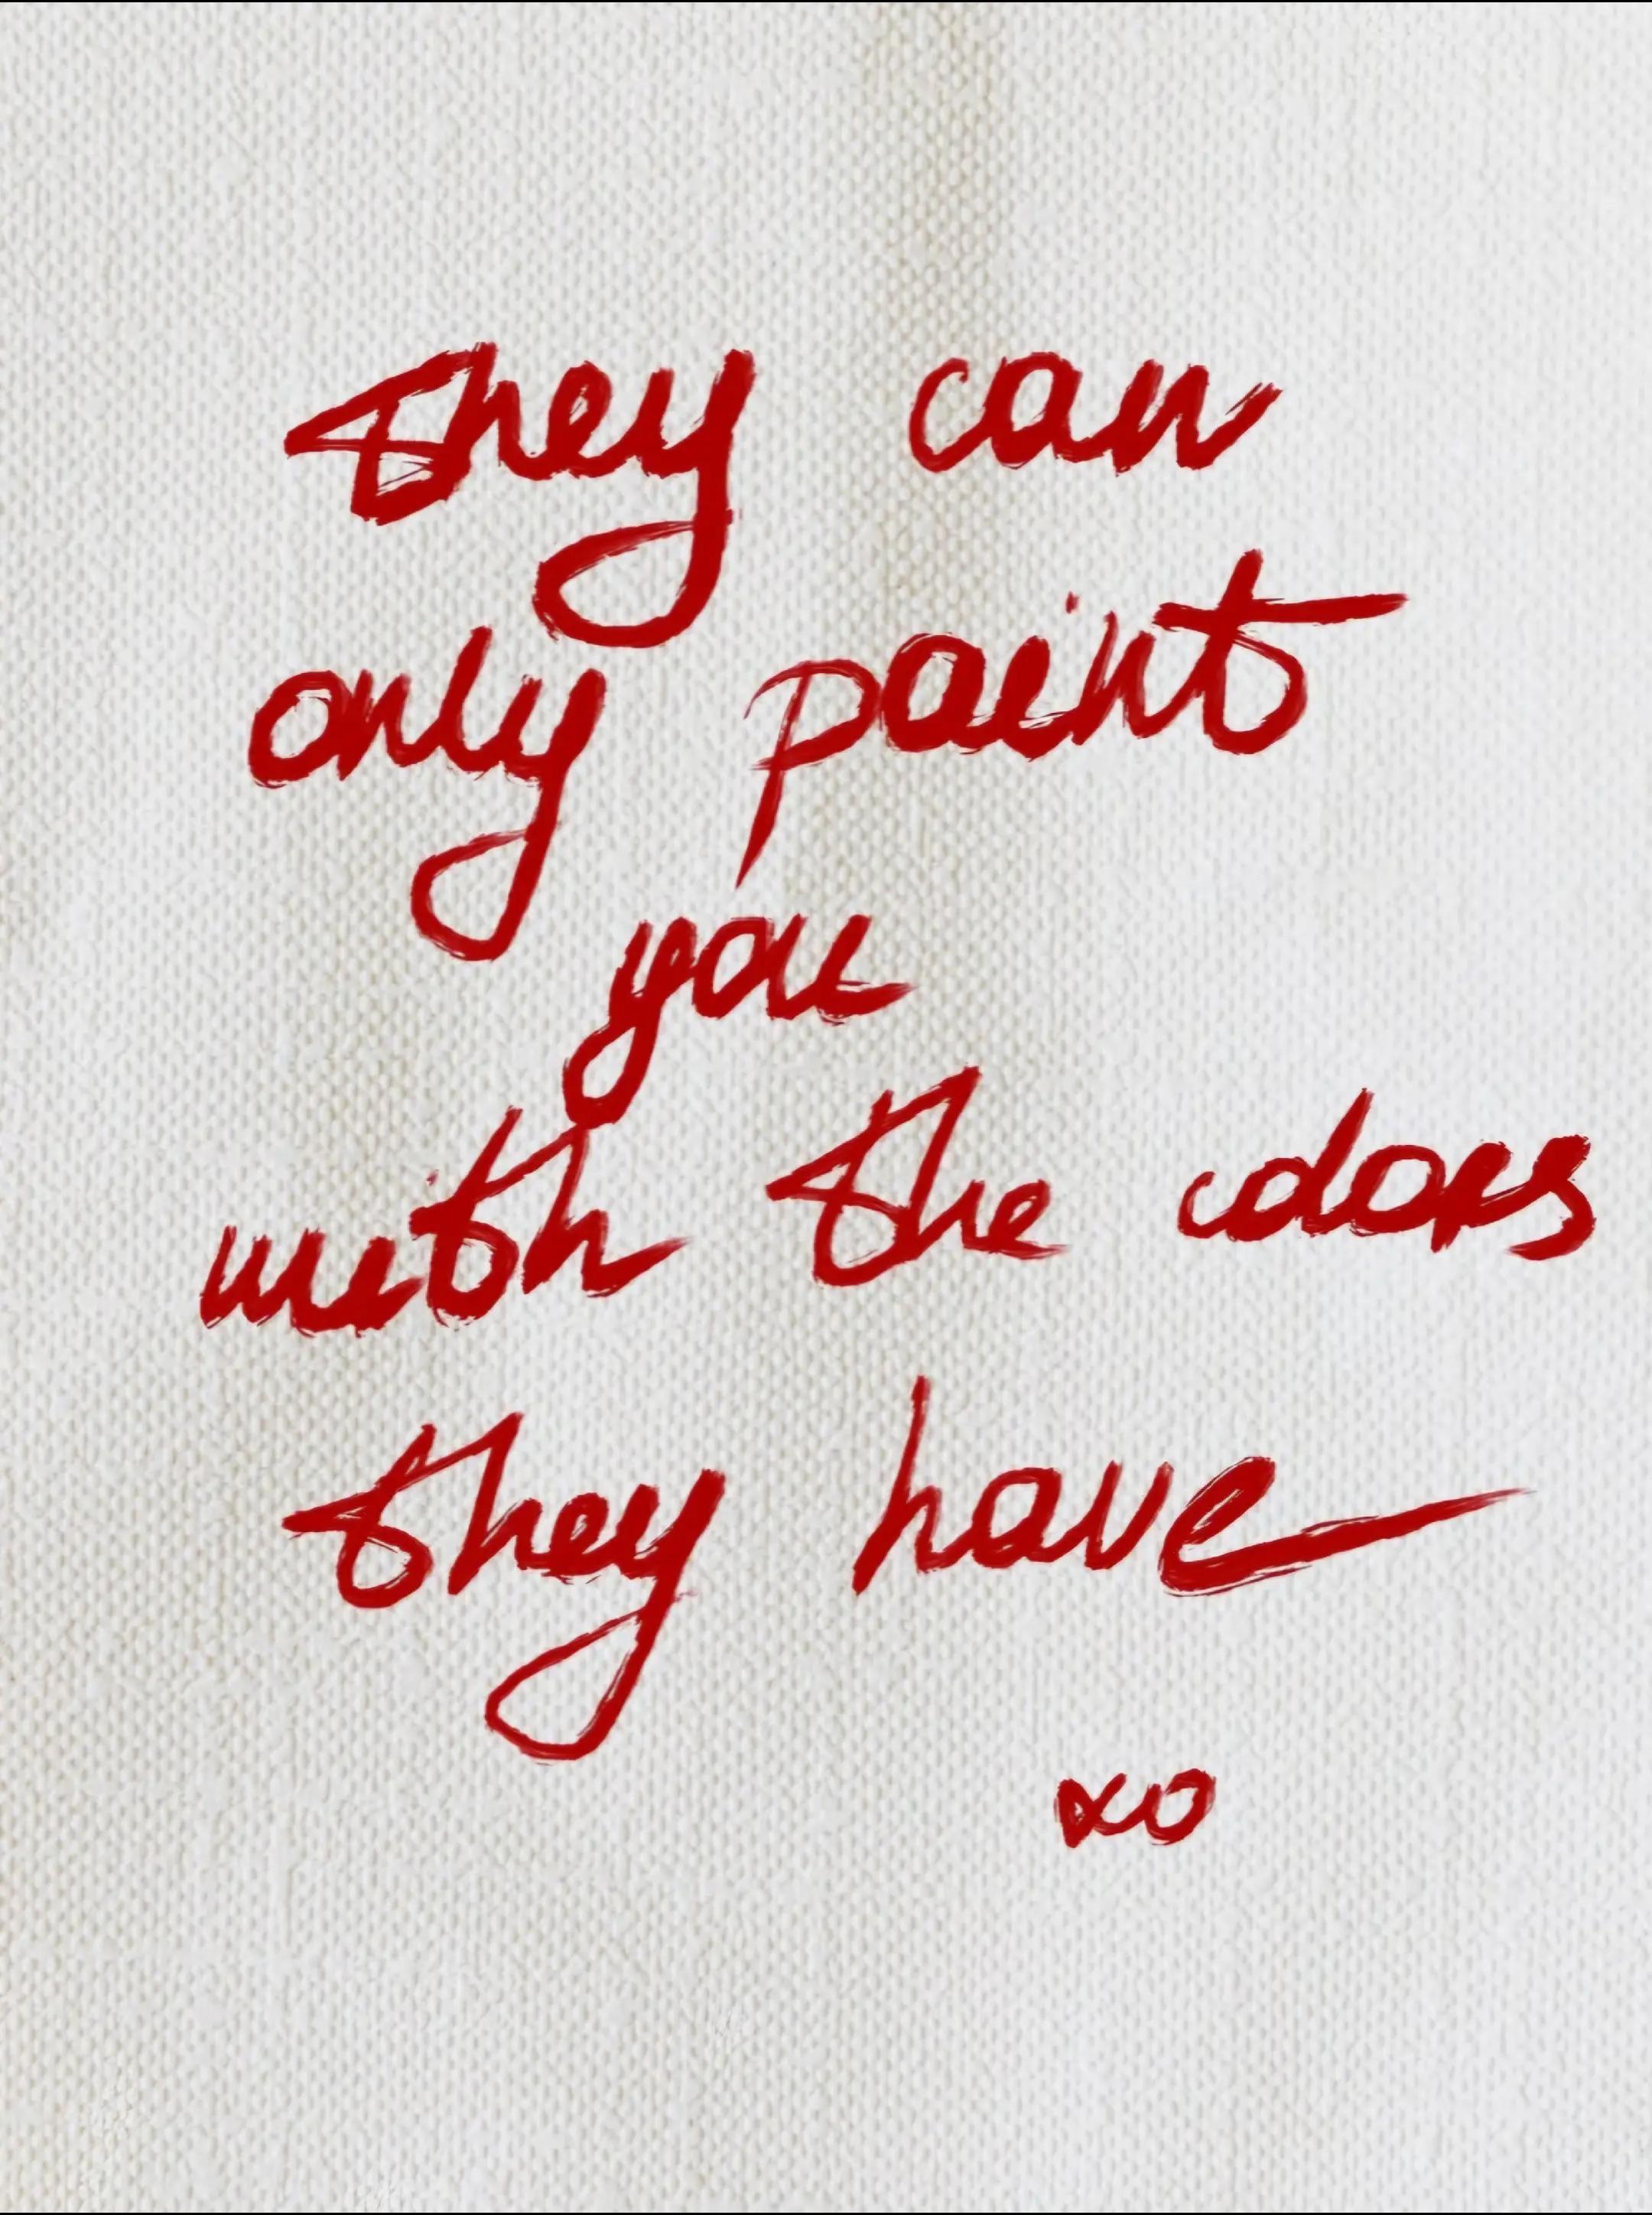 they can
only paint
you
with the colors
they have
xo